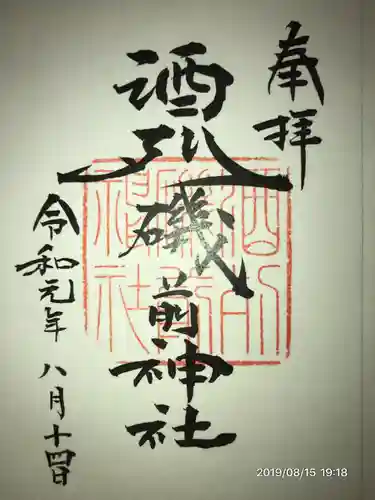 奉拝
酒列磯前神社
酒列
磯前
神社
令和元年 八月十四日
2019/08/15 19:18